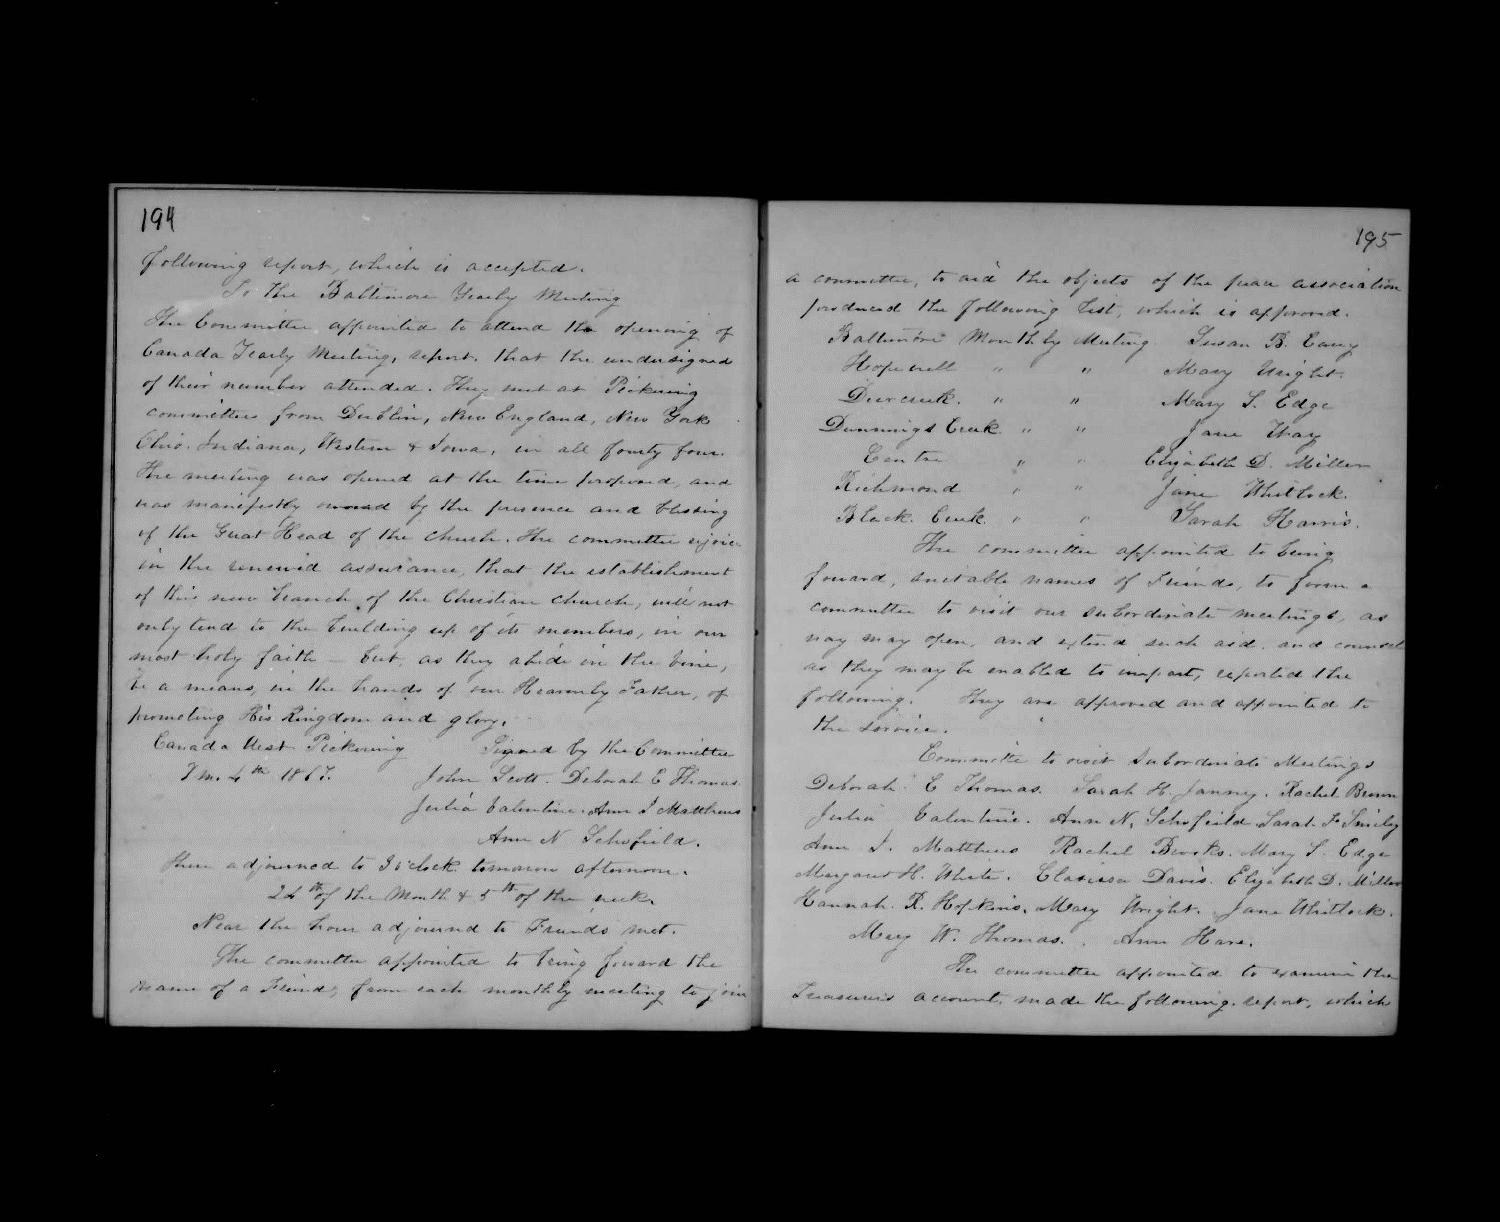 194
following report, which is accepted.
To the Baltimore Yearly Meeting
The Committee appointed to attend the opening of
Canada Yearly Meeting, report, that the undersigned
of their number attended. They met at Pickering
committees from Dublin, New England, New York
Ohio. Indiana, Western & Iowa, in all fourty four.
The meeting was opened at the time proposed, and
was manifestly owned by the presence and blessing
of the Great Head of the church. The committee rejoice
in the renewed assurance, that the establishment
of this new branch of the Christian church, will not
only tend to the building up of its members, in our
most holy faith — but, as they abide in the vine,
be a means, in the hands of our Heavenly Father, of
promoting His Kingdom and glory.
Canada West Pickering Signed by the Committee
7 Mo. 4th 1867. John Scott. Deborah C Thomas.
Julia Valentine. Ann J Matthews
Ann N Schofield.
Then adjourned to 3 o'clock tomorrow afternoon.
24th of the Month & 5th of the week.
Near the hour adjourned to Friends met.
The committee appointed to bring forward the
name of a Friend, from each monthly meeting to join
195
a committee, to aid the objects of the peace association
produced the following list, which is approved.
Baltimore Monthly Meeting. Susan B. Carey
Hopewell " " Mary Wright.
Deercreek. " " Mary S. Edge
Dunnings Creek. " " Jane Way
Centre " " Elizabeth D. Miller
Richmond " " Jane Whitlock.
Black Creek " " Sarah Harris.
The committee appointed to bring
foward, suitable names of Friends, to form a
committee to visit our subordinate meetings, as
way may open, and extend such aid. and counsel
as they may be enabled to impart, reported the
following. They are approved and appointed to
the service.
Committe to visit Subordinate Meetings
Deborah C Thomas. Sarah H. Janney. Rachel Brown
Julia Valentine. Ann N. Schofield Sarah F Smiley
Ann J. Matthews Rachel Brooks. Mary S. Edge
Margaret H. White. Clarissa Davis. Elizabeth D. Miller
Hannah. R. Hopkins. Mary Wright. Jane Whitlock.
Mary W. Thomas. Ann Hare.
The committee appointed to examine the
Treasurers account. made the following. report, which